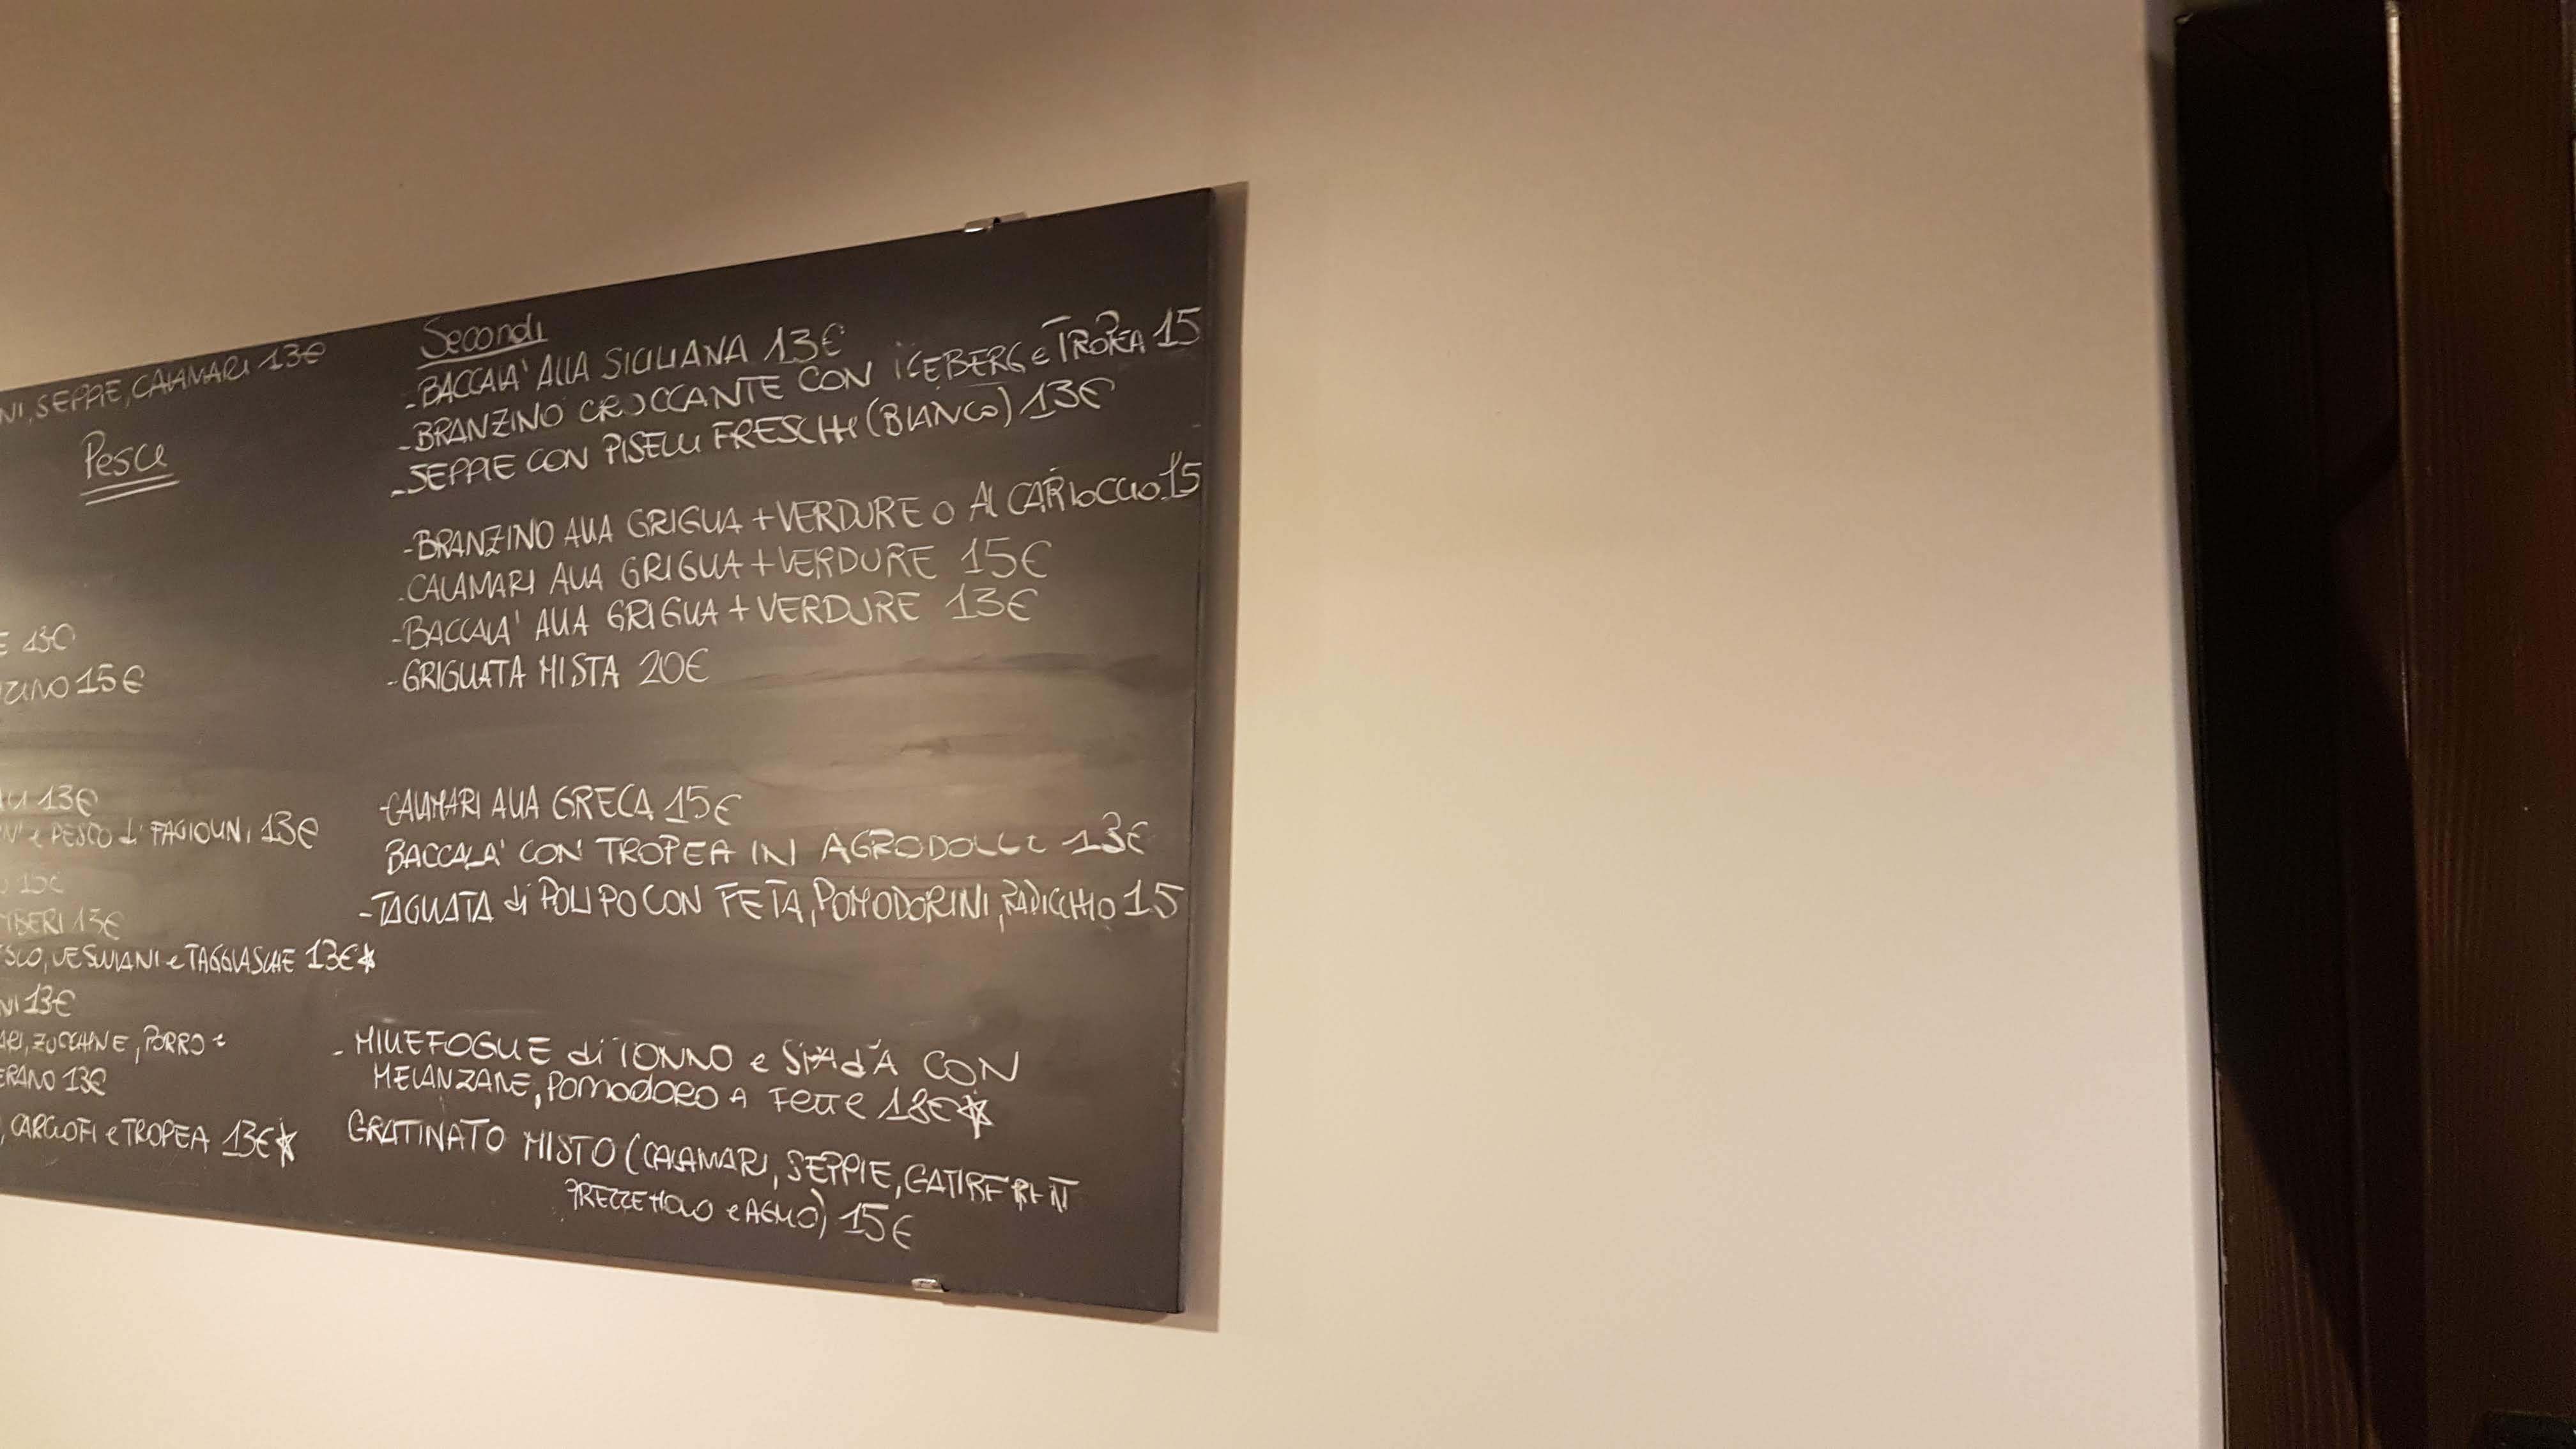 NI, SEPPIE, CALAMARI 13€
Pesce
E 13€
ZINO 15€
13€
e PESCO di FAGIOLINI 13€
15€
MBERI 13€
SCO, VESUVIANI e TAGGIASCHE 13€☆
NI 13€
ARI, ZUCCHINE, PORRO e
ERANO 13€
, CARCIOFI e TROPEA 13€☆
Secondi
-BACCALA' ALLA SICILIANA 13€
-BRANZINO CROCCANTE CON iCEBERG e TROPEA 15
-SEPPIE CON PISELLI FRESCHI (BIANCO) 13€
-BRANZINO ALLA GRIGLIA + VERDURE O Al CARTOCCIO 15
-CALAMARI ALLA GRIGLIA + VERDURE 15€
-BACCALA' ALLA GRIGLIA + VERDURE 13€
-GRIGLIATA MISTA 20€
-CALAMARI ALLA GRECA 15€
BACCALA' CON TROPEA IN AGRODOLCE 13€
-TAGLIATA di POLIPO CON FETA, POMODORINI, RADICCHIO 15
- MILLEFOGLIE di TONNO e SPAdA CON
MELANZANE, POMODORO A FETTE 18€☆
GRATINATO MISTO (CALAMARI, SEPPIE,
PREZZEMOLO e AGLIO) 15€